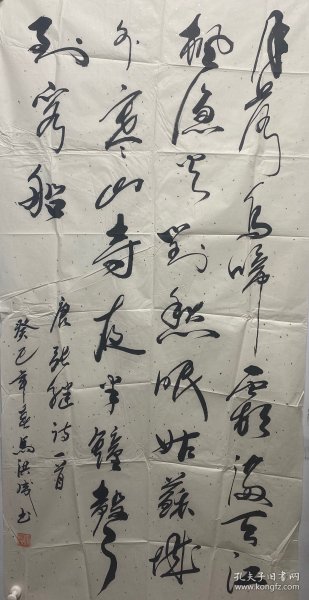 月落乌啼霜满天江
枫渔火对愁眠姑苏城
外寒山寺夜半钟声
到客船
唐张继诗一首
癸巳年春马洪
孔夫子旧书网